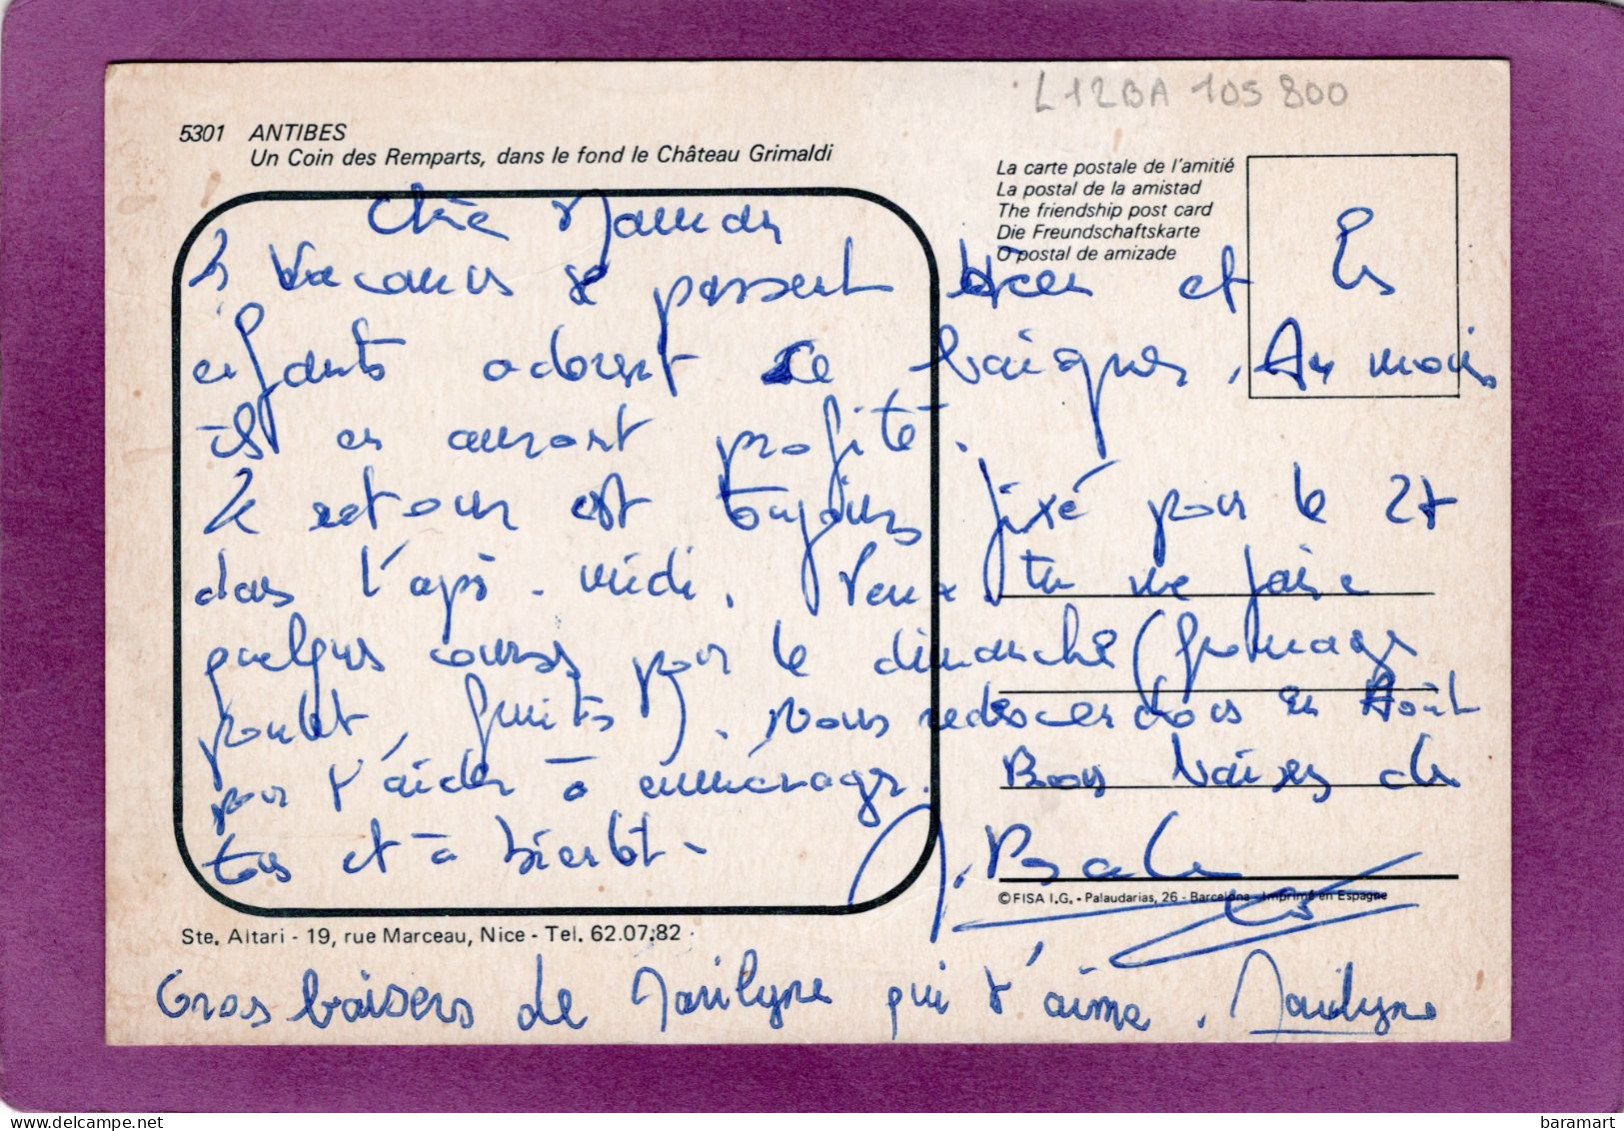 L12BA 105 800
5301 ANTIBES
Un Coin des Remparts, dans le fond le Château Grimaldi
La carte postale de l'amitié
La postal de la amistad
The friendship post card
Die Freundschaftskarte
O postal de amizade
Chère Maman
Les Vacances se passent bien et les
enfants adorent se baigner. Au moins
ils en auront profité.
Le retour est toujours fixé pour le 27
dans l'après-midi. Veux tu me faire
quelques courses pour le dimanche (fromage
poulet, fruits). Nous redescendons en Août
pour t'aider à emménager. Bons baisers de
tous et à bientôt -
©FISA I.G. - Palaudarias, 26 - Barcelona - Imprimé en Espagne
Ste. Altari - 19, rue Marceau, Nice - Tel. 62.07.82
Gros baisers de Marilyne qui t'aime. Marilyne
baramart